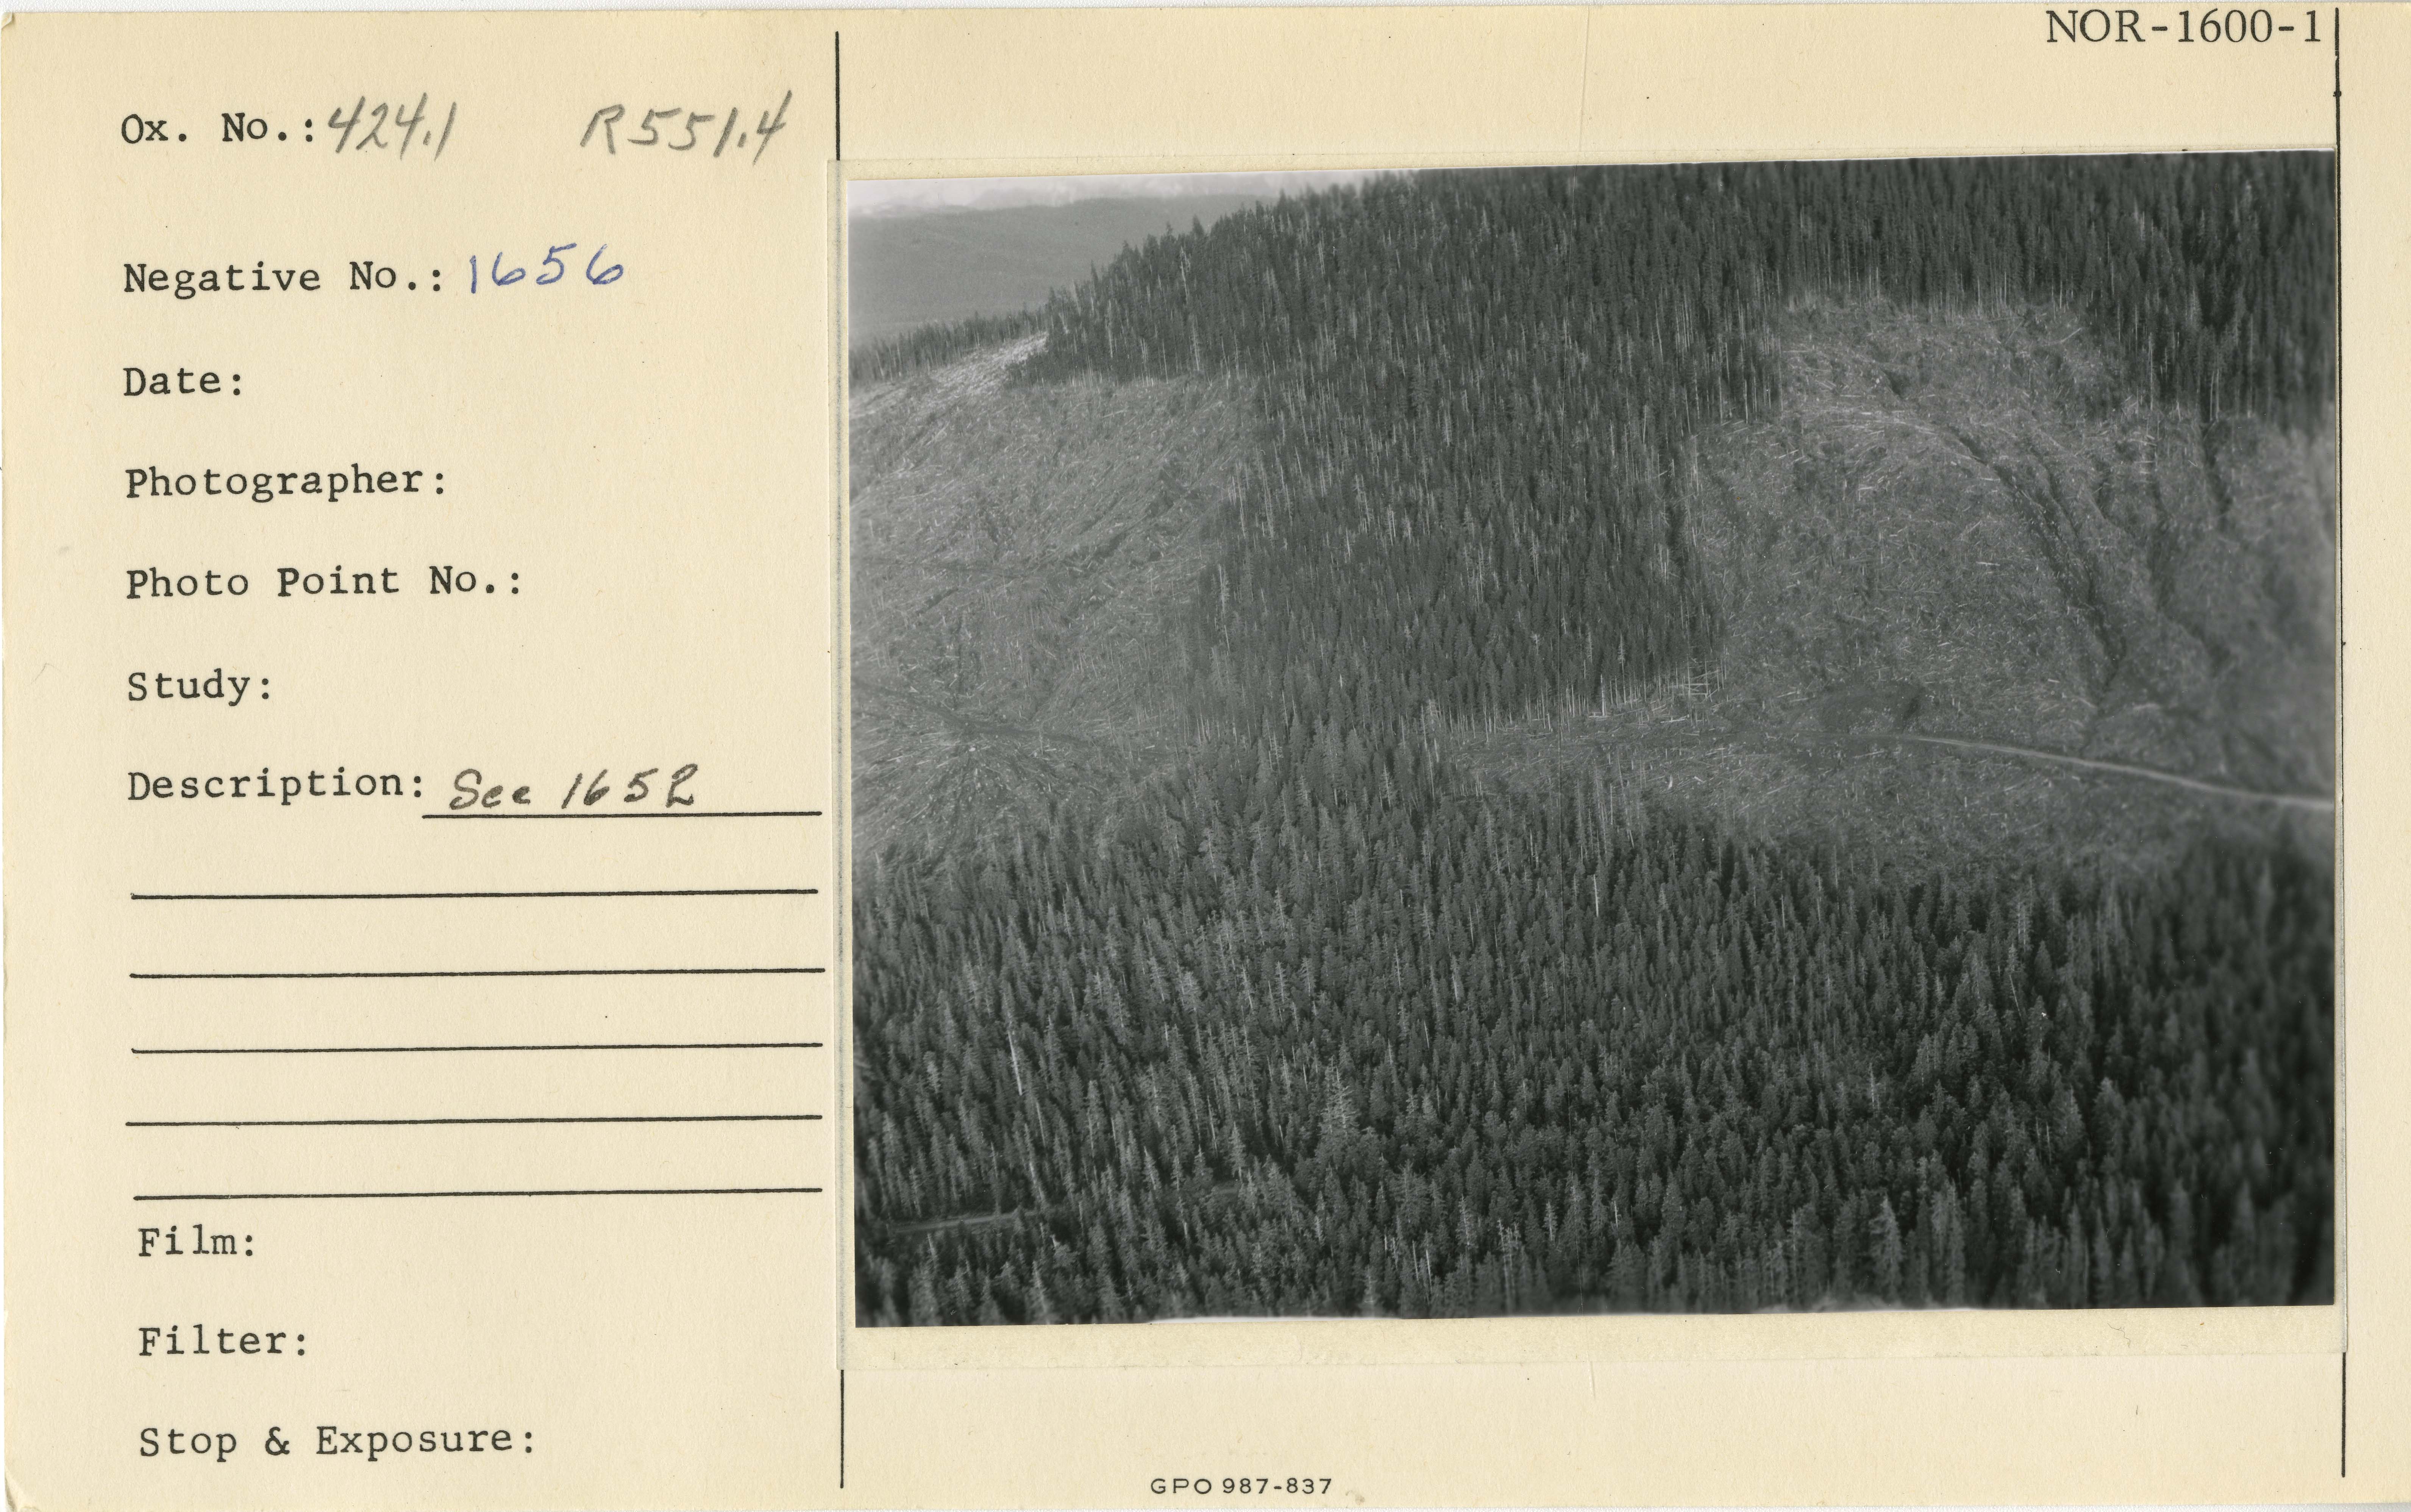 NOR-1600-1
Ox. No.: 424.1 R551.4
Negative No.: 1656
Date:
Photographer:
Photo Point No.:
Study:
Description: See 1652
Film:
Filter:
Stop & Exposure:
GPO 987-837